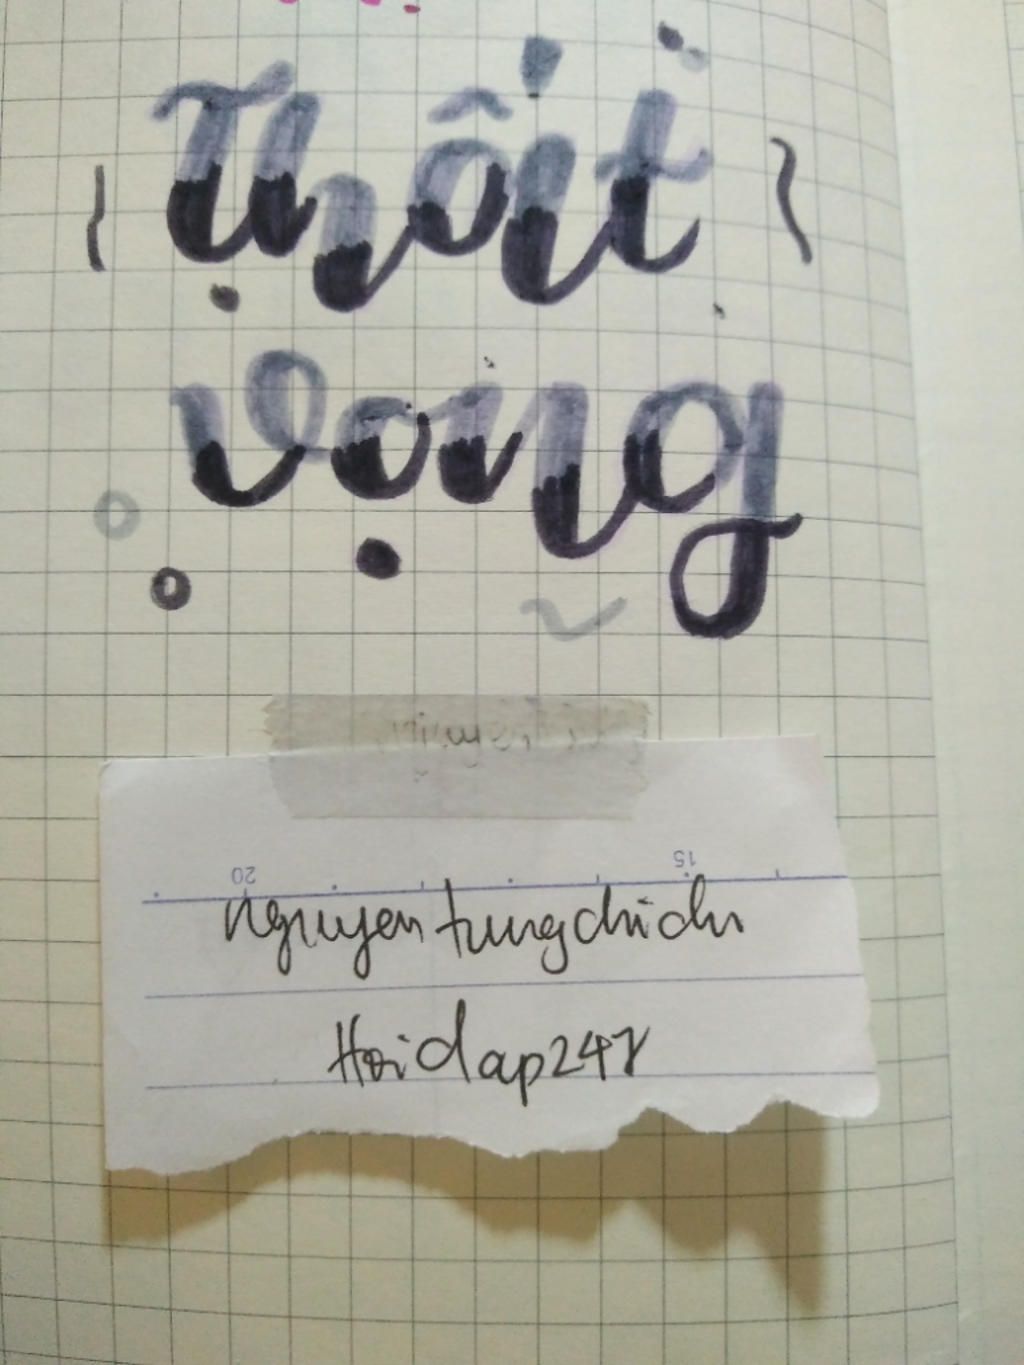 Thất
vọng
20 15
nguyentungchichi
Hoidap247